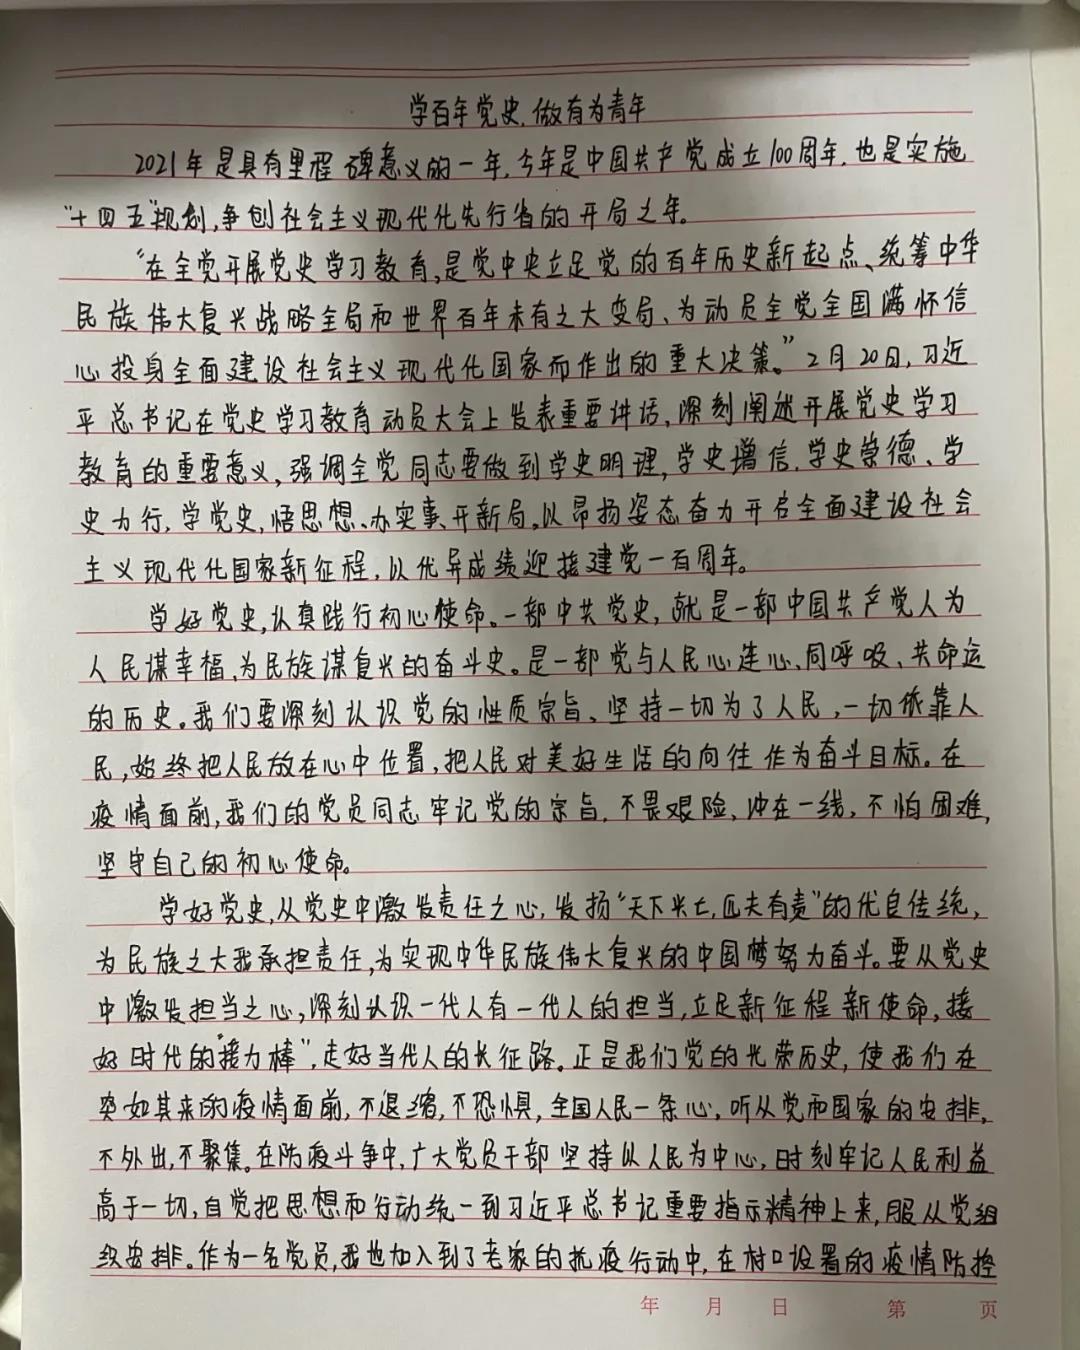 学百年党史，做有为青年
2021年是具有里程碑意义的一年，今年是中国共产党成立100周年，也是实施
“十四五”规划，争创社会主义现代化先行省的开局之年。
“在全党开展党史学习教育，是党中央立足党的百年历史新起点、统筹中华
民族伟大复兴战略全局和世界百年未有之大变局、为动员全党全国满怀信
心投身全面建设社会主义现代化国家而作出的重大决策。”2月20日，习近
平总书记在党史学习教育动员大会上发表重要讲话，深刻阐述开展党史学习
教育的重要意义，强调全党同志要做到学史明理，学史增信，学史崇德、学
史力行，学党史，悟思想、办实事、开新局，以昂扬姿态奋力开启全面建设社会
主义现代化国家新征程，以优异成绩迎接建党一百周年。
学好党史，认真践行初心使命。一部中共党史，就是一部中国共产党人为
人民谋幸福、为民族谋复兴的奋斗史。是一部党与人民心连心、同呼吸、共命运
的历史。我们要深刻认识党的性质宗旨、坚持一切为了人民，一切依靠人
民，始终把人民放在心中位置，把人民对美好生活的向往作为奋斗目标。在
疫情面前，我们的党员同志牢记党的宗旨，不畏艰险，冲在一线，不怕困难，
坚守自己的初心使命。
学好党史，从党史中激发责任之心，发扬“天下兴亡，匹夫有责”的优良传统，
为民族之大我承担责任，为实现中华民族伟大复兴的中国梦努力奋斗。要从党史
中激发担当之心，深刻认识一代人有一代人的担当，立足新征程新使命，接
好时代的“接力棒”，走好当代人的长征路。正是我们党的光荣历史，使我们在
突如其来的疫情面前，不退缩，不恐惧，全国人民一条心，听从党和国家的安排，
不外出，不聚集。在防疫斗争中，广大党员干部坚持以人民为中心，时刻牢记人民利益
高于一切，自觉把思想和行动统一到习近平总书记重要指示精神上来，服从党组
织安排。作为一名党员，我也加入到了老家的抗疫行动中，在村口设置的疫情防控
年 月 日 第 页